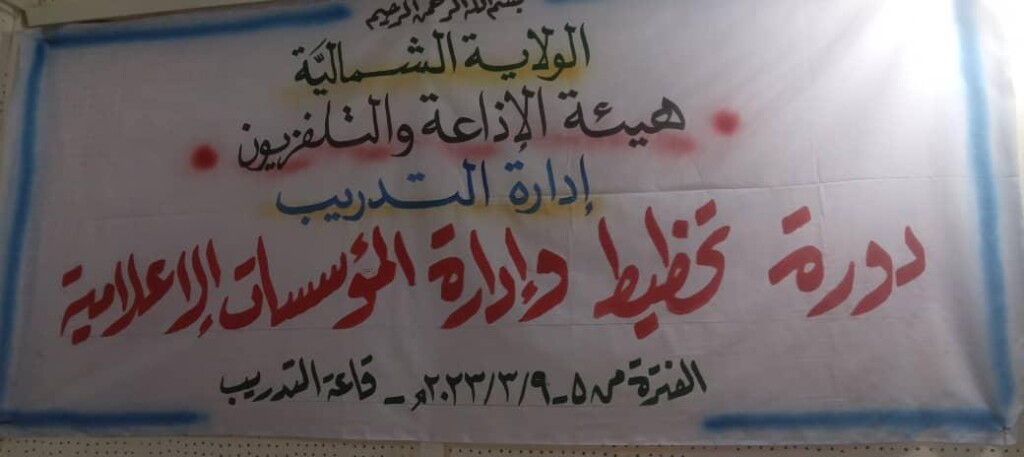 بسم الله الرحمن الرحيم
الولاية الشمالية
هيئة الإذاعة والتلفزيون
إدارة التدريب
دورة تخطيط وإدارة المؤسسات الإعلامية
الفترة من ٥-٢٠٢٣/٣/٩م - قاعة التدريب